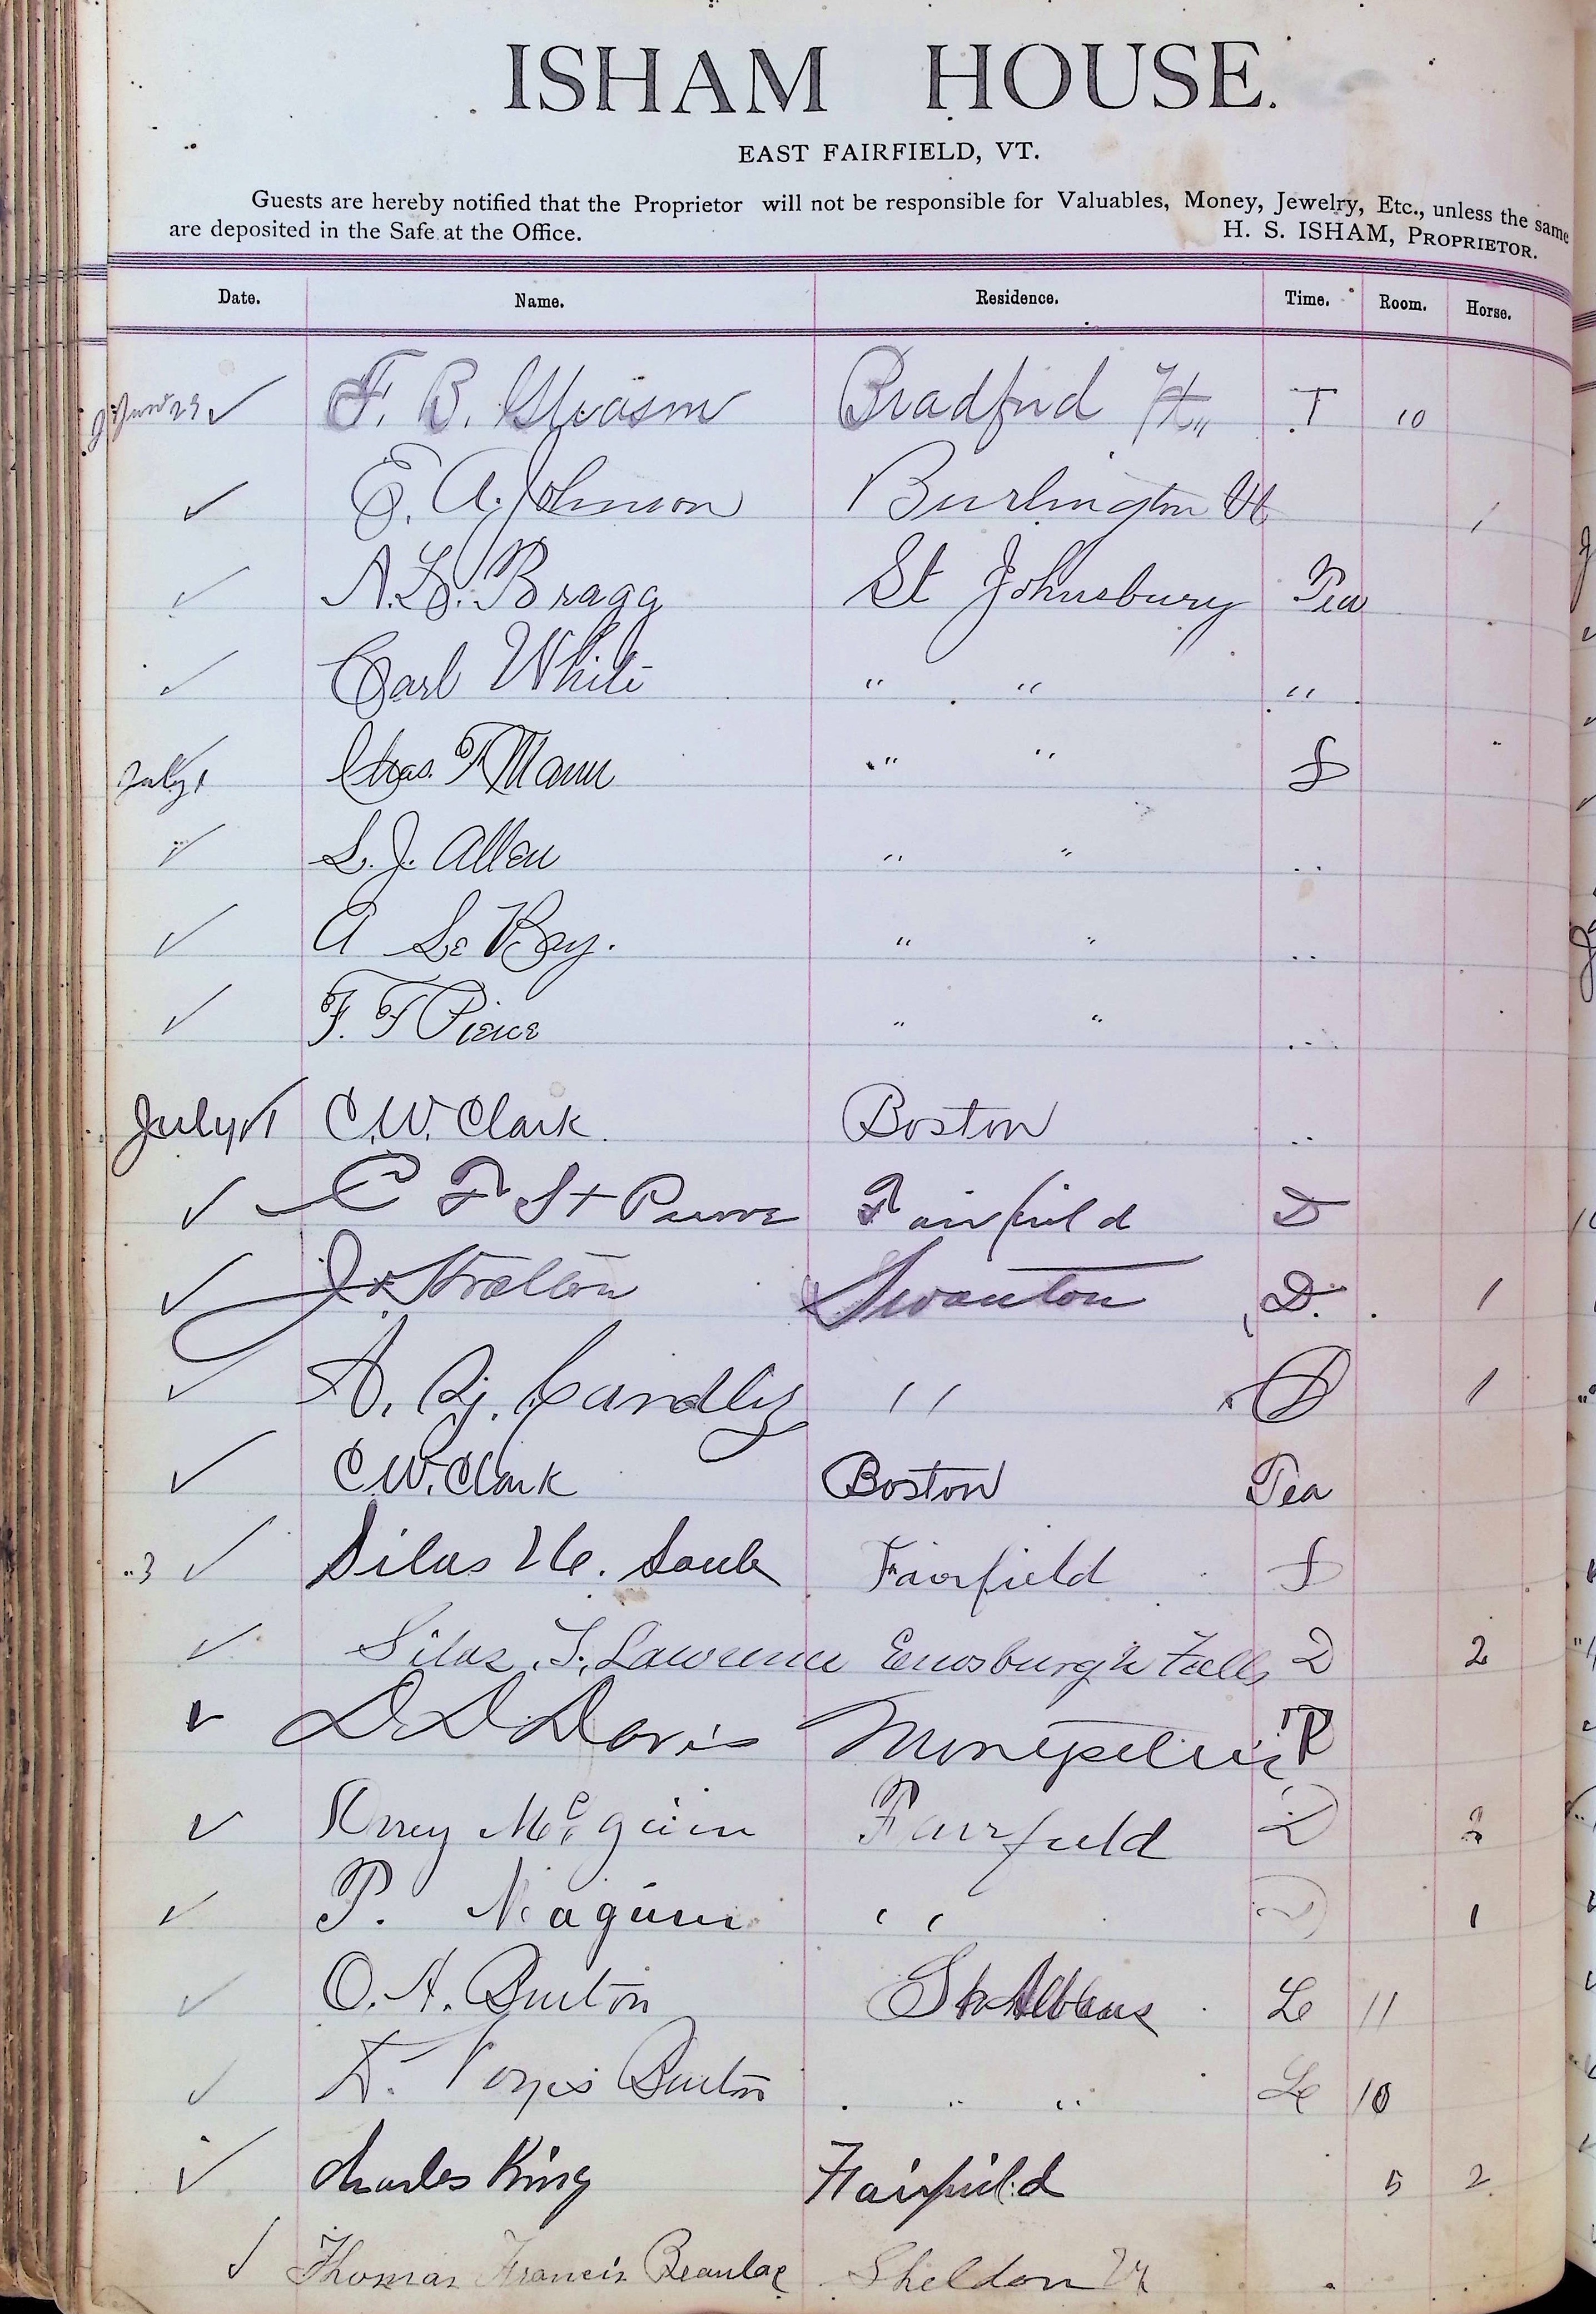 ISHAM HOUSE.
EAST FAIRFIELD, VT.
Guests are hereby notified that the Proprietor will not be responsible for Valuables, Money, Jewelry, Etc., unless the same
are deposited in the Safe at the Office. H. S. ISHAM, PROPRIETOR.
Date. Name. Residence. Time. Room. Horse.
✓ F. B. Bradford Vt,, T 10
✓ E. A. Johnson Burlington Vt 1
✓ A. L. Bragg St Johnsbury Tea
✓ Carl White " " "
July 1 Chas. F Mann " " S
✓ L. J. Allen " " "
✓ A Le Bay. " " "
✓ F. F Pierce " " "
July 1 C. W. Clark. Boston "
✓ C F St Pierre Fairfield D
✓ J Stratton Swanton D. 1
✓ A. " D 1
✓ C. W. Clark Boston Tea
" 3 ✓ Silas H. Soule Fairfield S
✓ Silas Lawrence Enosburgh Falls D 2
✓ D D Davis Montpelier
✓ McGuinn Fairfield D 2
✓ P. " D 1
✓ O. A. Burton St Albans Lo 11
✓ Burton " " Lo 10
✓ Charles King Fairfield 5 2
✓ Thomas Francis Beaulac Sheldon Vt